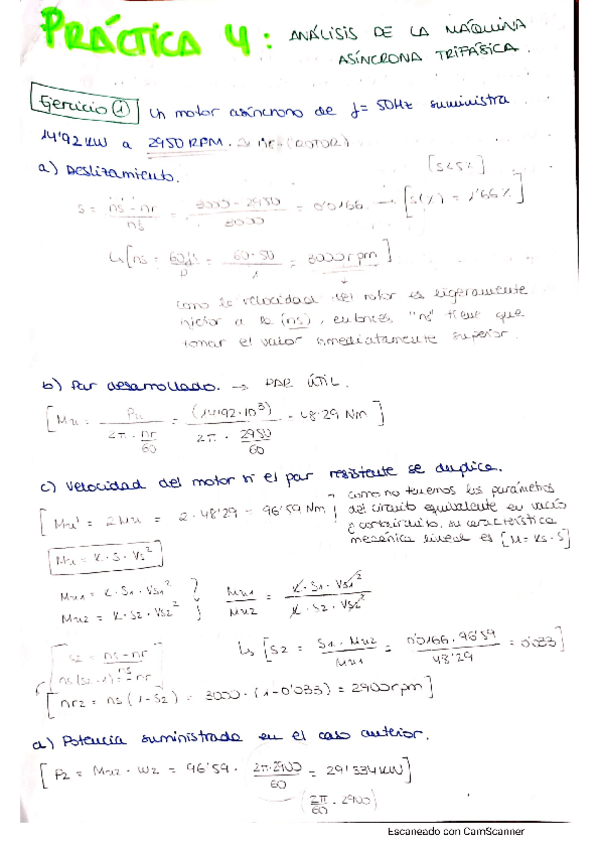 PRÁCTICA 4: ANÁLISIS DE LA MÁQUINA
ASÍNCRONA TRIFÁSICA.
Ejercicio ① Un motor asíncrono de f= 50Hz suministra
14'92 KW a 2950 RPM. → nr (ROTOR)
a) Deslizamiento. [S<5%]
S = ns - nr / ns = 3000 - 2950 / 3000 = 0'0166 → [S(%) = 1'66%]
↳ [ns = 60·f / p = 60·50 / 1 = 3000 rpm]
como la velocidad del rotor es ligeramente
inferior a la (ns), entonces "ns" tiene que
tomar el valor inmediatamente superior.
b) Par desarrollado. → PAR ÚTIL.
[Mu = Pu / 2π · nr/60 = (14'92·10³) / 2π · 2950/60 = 48'29 Nm]
c) Velocidad del motor si el par resistente se duplica.
[Mu' = 2Mu = 2·48'29 = 96'59 Nm]
como no tenemos los parámetros
del circuito equivalente en vacío
y cortocircuito, su característica
mecánica lineal es [M = K·S]
Mu = K·S·Vs²
Mu1 = K·S1·Vs1²
Mu2 = K·S2·Vs2²
Mu1 / Mu2 = K·S1·Vs1² / K·S2·Vs2²
↳ [S2 = S1·Mu2 / Mu1 = 0'0166·96'59 / 48'29 = 0'033]
S2 = ns - nr / ns
[nr2 = ns (1-S2) = 3000·(1-0'033) = 2900 rpm]
d) Potencia suministrada en el caso anterior.
[P2 = Mu2·W2 = 96'59 · 2π·2900 / 60 = 29'334 KW]
(2π / 60 · 2900)
Escaneado con CamScanner